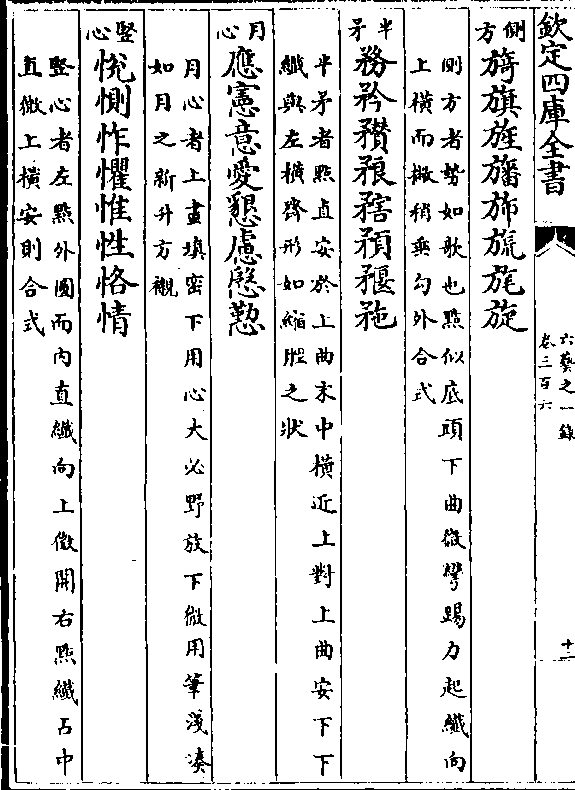 欽定四庫全書
六藝之一錄
卷三百六
十二
側方 旖旗旌旛斾旒旄旋
側方者勢如歌也點似底頭下曲微彎踢力起纖向
上橫而檄稍垂勾外合式
半矛 務矜
半矛者點直安於上曲末中橫近上對上曲安下下
纖與左橫齊形如縮脛之狀
月心 應憲意愛懇慮慇懃
月心者上畫填密下用心大必野放下微用筆淺湊
如月之新升方襯
竪心 恱惻怍懼惟性恪情
竪心者左點外圓而内直纖向上微開右點纖占中
直微上橫安則合式